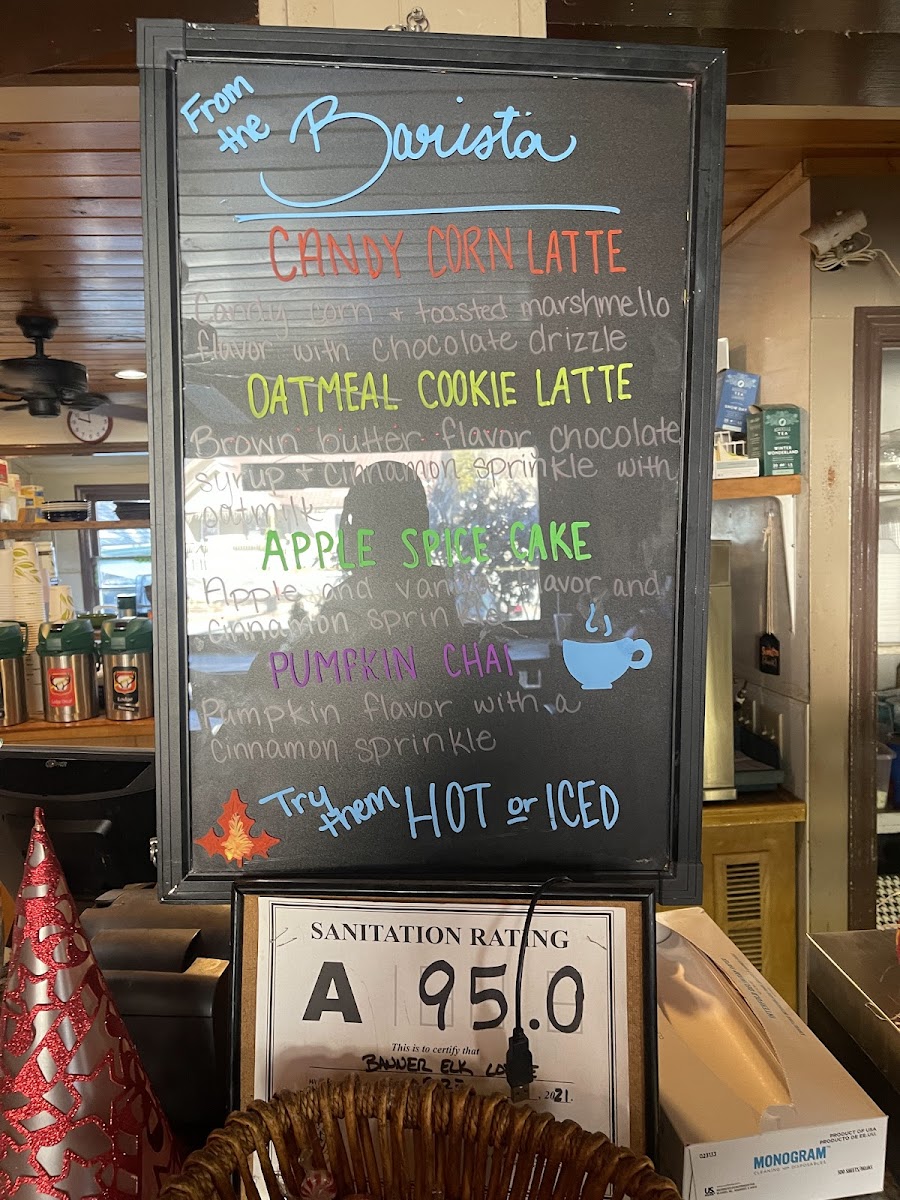 From
the Barista
CANDY CORN LATTE
Candy corn + toasted marshmello
flavor with chocolate drizzle
OATMEAL COOKIE LATTE
Brown butter flavor chocolate
syrup + cinnamon sprinkle with
oatmilk
APPLE SPICE CAKE
Apple and flavor and
cinnamon sprinkle
PUMPKIN CHAI
Pumpkin flavor with a
cinnamon sprinkle
Try
them HOT or ICED
SANITATION RATING
A 95.0
This is to certify that
BANNER ELK
2021.
SNOW DAY
TEA
WINTER
WONDERLAND
PRODUCT OF USA
PRODUCTO DE EE.UU.
MONOGRAM
CLEANING DISPOSABLES